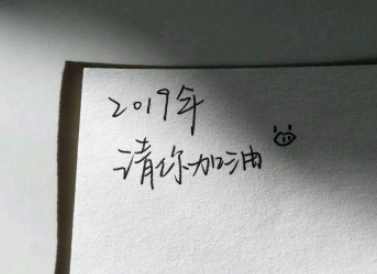 2019年
请你加油